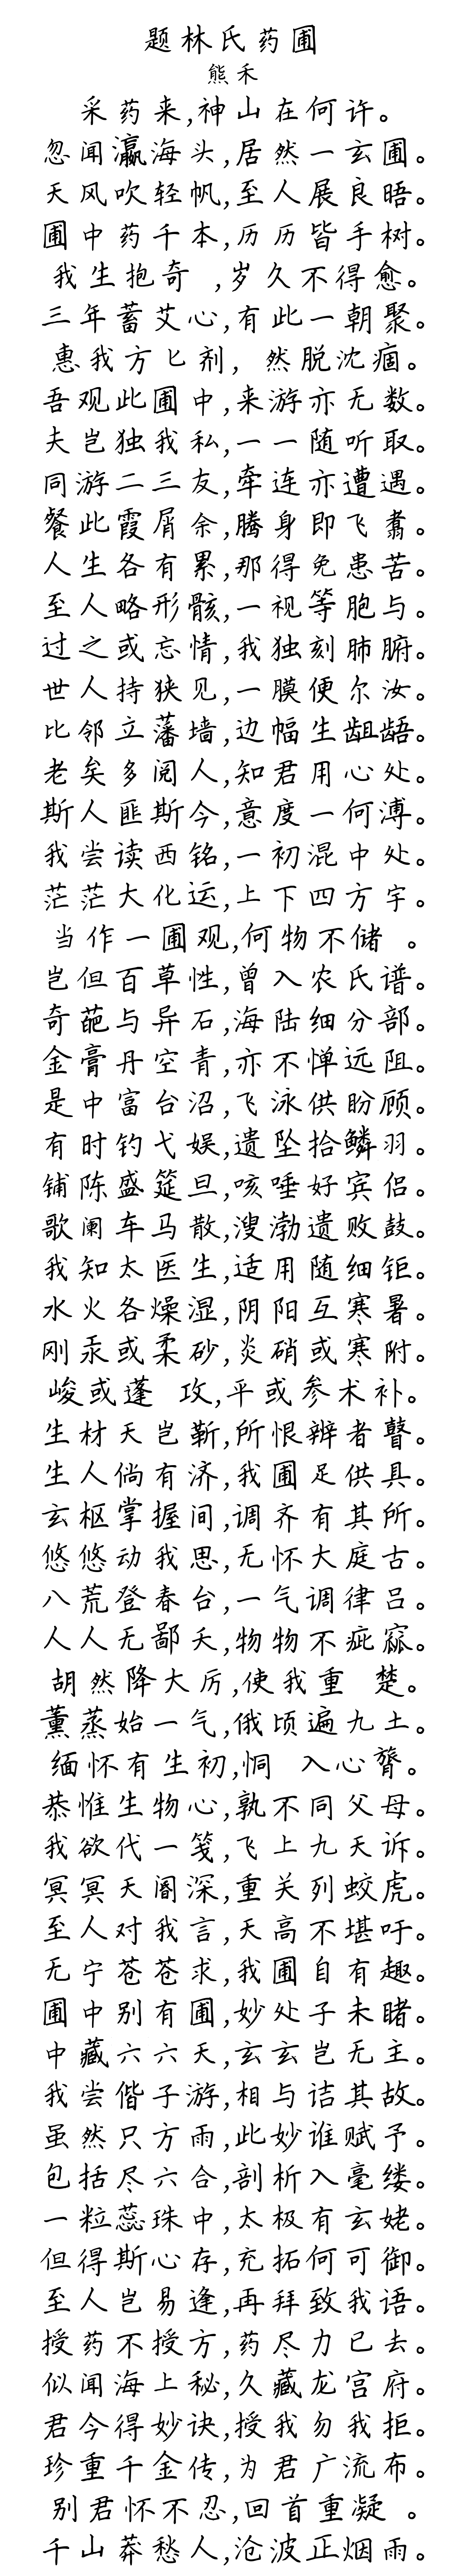 题林氏药圃
熊禾
采药来,神山在何许。
忽闻瀛海头,居然一玄圃。
天风吹轻帆,至人展良晤。
圃中药千本,历历皆手树。
我生抱奇 ,岁久不得愈。
三年蓄艾心,有此一朝聚。
惠我方匕剂, 然脱沈痼。
吾观此圃中,来游亦无数。
夫岂独我私,一一随听取。
同游二三友,牵连亦遭遇。
餐此霞屑余,腾身即飞翥。
人生各有累,那得免患苦。
至人略形骸,一视等胞与。
过之或忘情,我独刻肺腑。
世人持狭见,一膜便尔汝。
比邻立藩墙,边幅生龃龉。
老矣多阅人,知君用心处。
斯人匪斯今,意度一何溥。
我尝读西铭,一初混中处。
茫茫大化运,上下四方宇。
当作一圃观,何物不储 。
岂但百草性,曾入农氏谱。
奇葩与异石,海陆细分部。
金膏丹空青,亦不惮远阻。
是中富台沼,飞泳供盼顾。
有时钓弋娱,遗坠拾鳞羽。
铺陈盛筵旦,咳唾好宾侣。
歌阑车马散,溲渤遗败鼓。
我知太医生,适用随细钜。
水火各燥湿,阴阳互寒暑。
刚汞或柔砂,炎硝或寒附。
峻或蓬 攻,平或参术补。
生材天岂靳,所恨辨者瞽。
生人倘有济,我圃足供具。
玄枢掌握间,调齐有其所。
悠悠动我思,无怀大庭古。
八荒登春台,一气调律吕。
人人无鄙夭,物物不疵窳。
胡然降大厉,使我重 楚。
薰蒸始一气,俄顷遍九土。
缅怀有生初,恫 入心膂。
恭惟生物心,孰不同父母。
我欲代一笺,飞上九天诉。
冥冥天阍深,重关列蛟虎。
至人对我言,天高不堪吁。
无宁苍苍求,我圃自有趣。
圃中别有圃,妙处子未睹。
中藏六六天,玄玄岂无主。
我尝偕子游,相与诘其故。
虽然只方雨,此妙谁赋予。
包括尽六合,剖析入毫缕。
一粒蕊珠中,太极有玄姥。
但得斯心存,充拓何可御。
至人岂易逢,再拜致我语。
授药不授方,药尽力已去。
似闻海上秘,久藏龙宫府。
君今得妙诀,授我勿我拒。
珍重千金传,为君广流布。
别君怀不忍,回首重凝 。
千山莽愁人,沧波正烟雨。